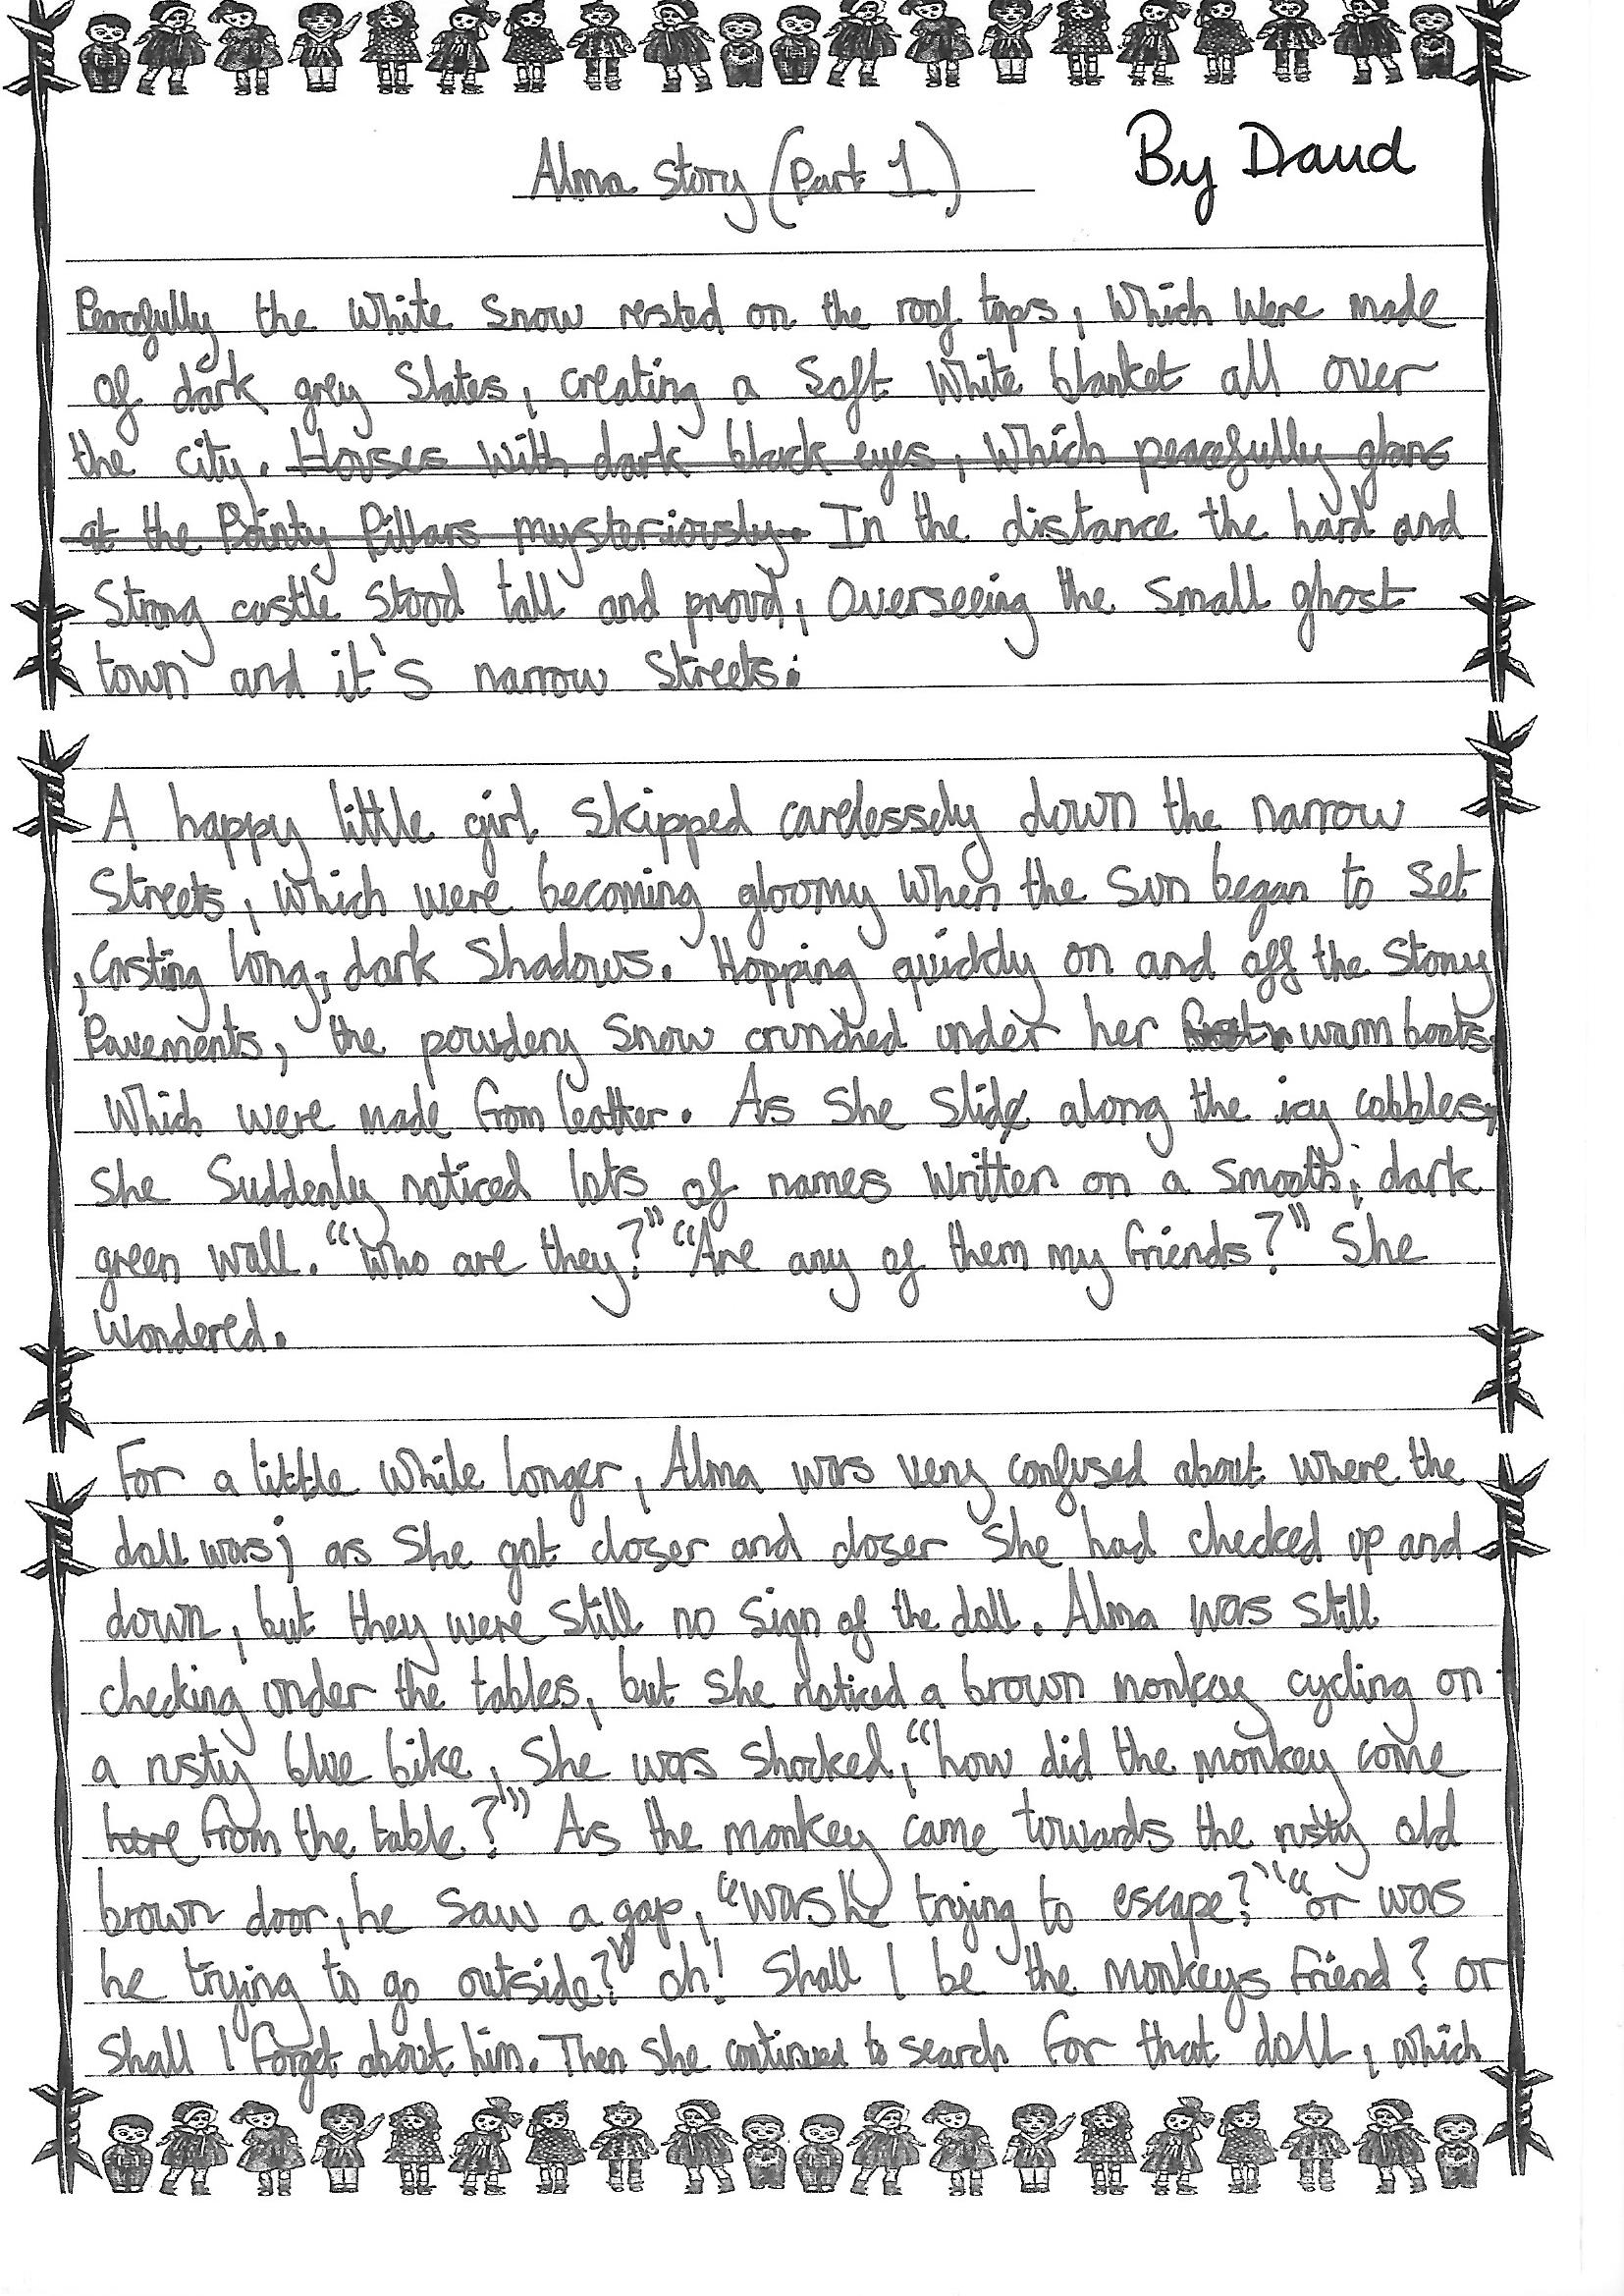 Alma Story (Part 1)
By Daud
Peacefully the white snow rested on the roof tops, which were made
of dark grey slates, creating a soft white blanket all over
the city. Houses with dark black eyes, which peacefully glans
at the Pointy Pillars mysteriously. In the distance the hard and
strong castle stood tall and proud, overseeing the small ghost
town and it's narrow streets.
A happy little girl skipped carelessely down the narrow
streets, which were becoming gloomy when the sun began to set
, casting long, dark shadows. Hopping quickly on and off the stony
Pavements, the powdery snow crunched under her warm boots
which were made from leather. As she slid along the icy cobbles,
she suddenly noticed lots of names written on a smooth, dark
green wall. "Who are they?" "Are any of them my friends?" She
wondered.
For a little while longer, Alma was very confused about where the
doll was; as she got closer and closer she had checked up and
down, but they were still no sign of the doll. Alma was still
checking under the tables, but she noticed a brown monkey cycling on
a rusty blue bike, She was shocked, "how did the monkey come
here from the table?" As the monkey came towards the rusty old
brown door, he saw a gap, "was he trying to escape?" "or was
he trying to go outside?" oh! Shall I be the monkeys friend? or
shall I forget about him. Then she continued to search for that doll, which